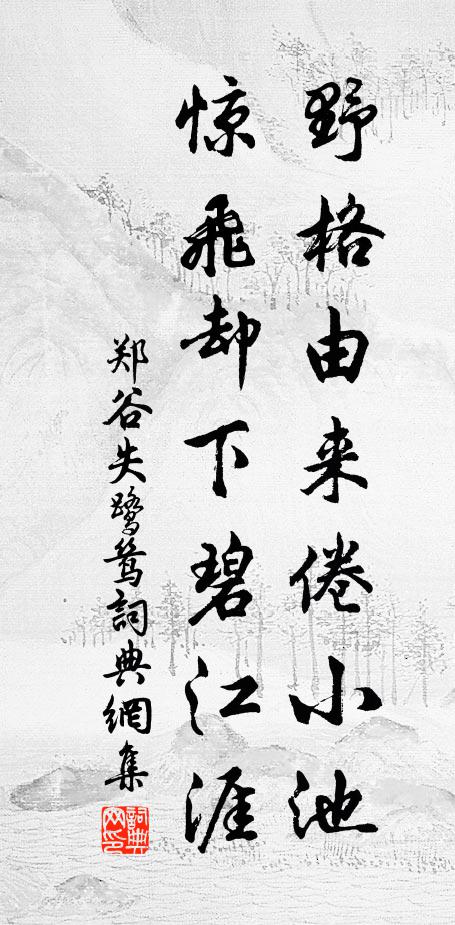 野格由来倦小池
惊飞却下碧江涯
郑谷失鹭鸶詞典網集
詞典网印